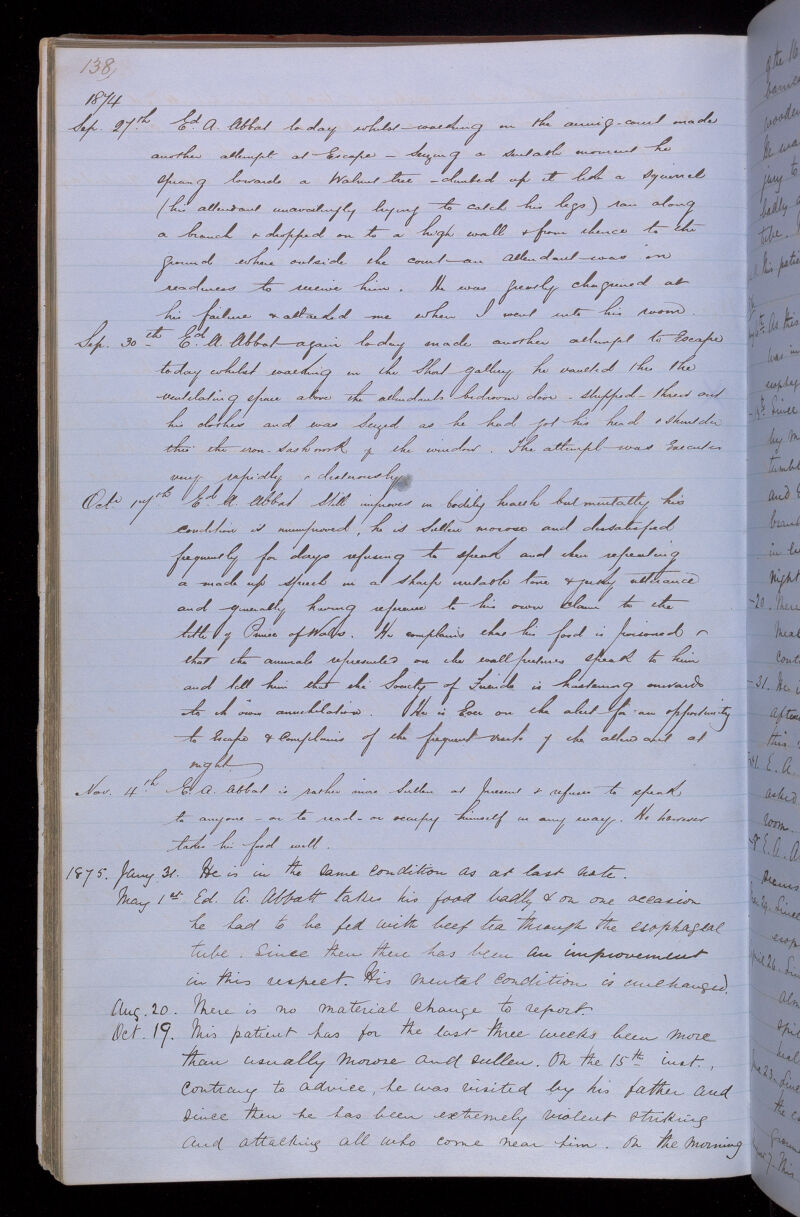 138,
1874
Sep. 27th Ed. A. Abbot to day whilst walking in the airing-court made
another attempt at Escape – Seizing a suitable moment he
sprang towards a Walnut tree – climbed up it like a squirrel
(his attendant unavailingly trying to catch his legs) ran along
a branch & dropped on to a high wall & from thence to the
ground where outside the court – an attendant was in
readiness to receive him. He was greatly chagrined at
his failure & attacked me when I went into his room.
Sep. 30th Ed. A. Abbot again to day made another attempt to Escape
today whilst walking in the Short gallery he vaulted thro the
ventilating space above the attendants bedroom door – stripped – threw out
his clothes and was seized as he had got his head & shoulder
thro' the iron-sashwork of the window. The attempt was Executed
very rapidly & dexterously
Oct. 17th Ed. A. Abbot Still improves in bodily health but mentally his
condition is unimproved, he is sullen morose and dissatisfied
frequently for days refusing to speak and then repeating
a made up speech in a sharp irritable tone & jerky utterance
and generally having reference to his own claim to the
title of Prince of Wales. He complains that his food is poisoned &
that the animals represented on the wall pictures speak to him
and tell him that the Society of Friends is hastening onwards
to it own annihilation. He is Ever on the alert for an opportunity
to Escape & complains of the frequent visits of the attendant at
night
Nov. 4th E. A. Abbot is rather more sullen at present & refuses to speak
to anyone – or to read – or occupy himself in any way. He however
takes his food well.
1875. Jany. 31. He is in the same condition as at last note.
May 1st Ed. A. Abbott takes his food badly & on one occasion
he had to be fed with beef tea through the esophageal
tube. Since then there has been an improvement
in this respect. His mental condition is unchanged.
Aug. 20. There is no material change to report.
Oct. 19. This patient has for the last three weeks been more
than usually morose and sullen. On the 15th inst.,
contrary to advice, he was visited by his father and
since then he has been extremely violent striking
and attacking all who come near him. On the morning